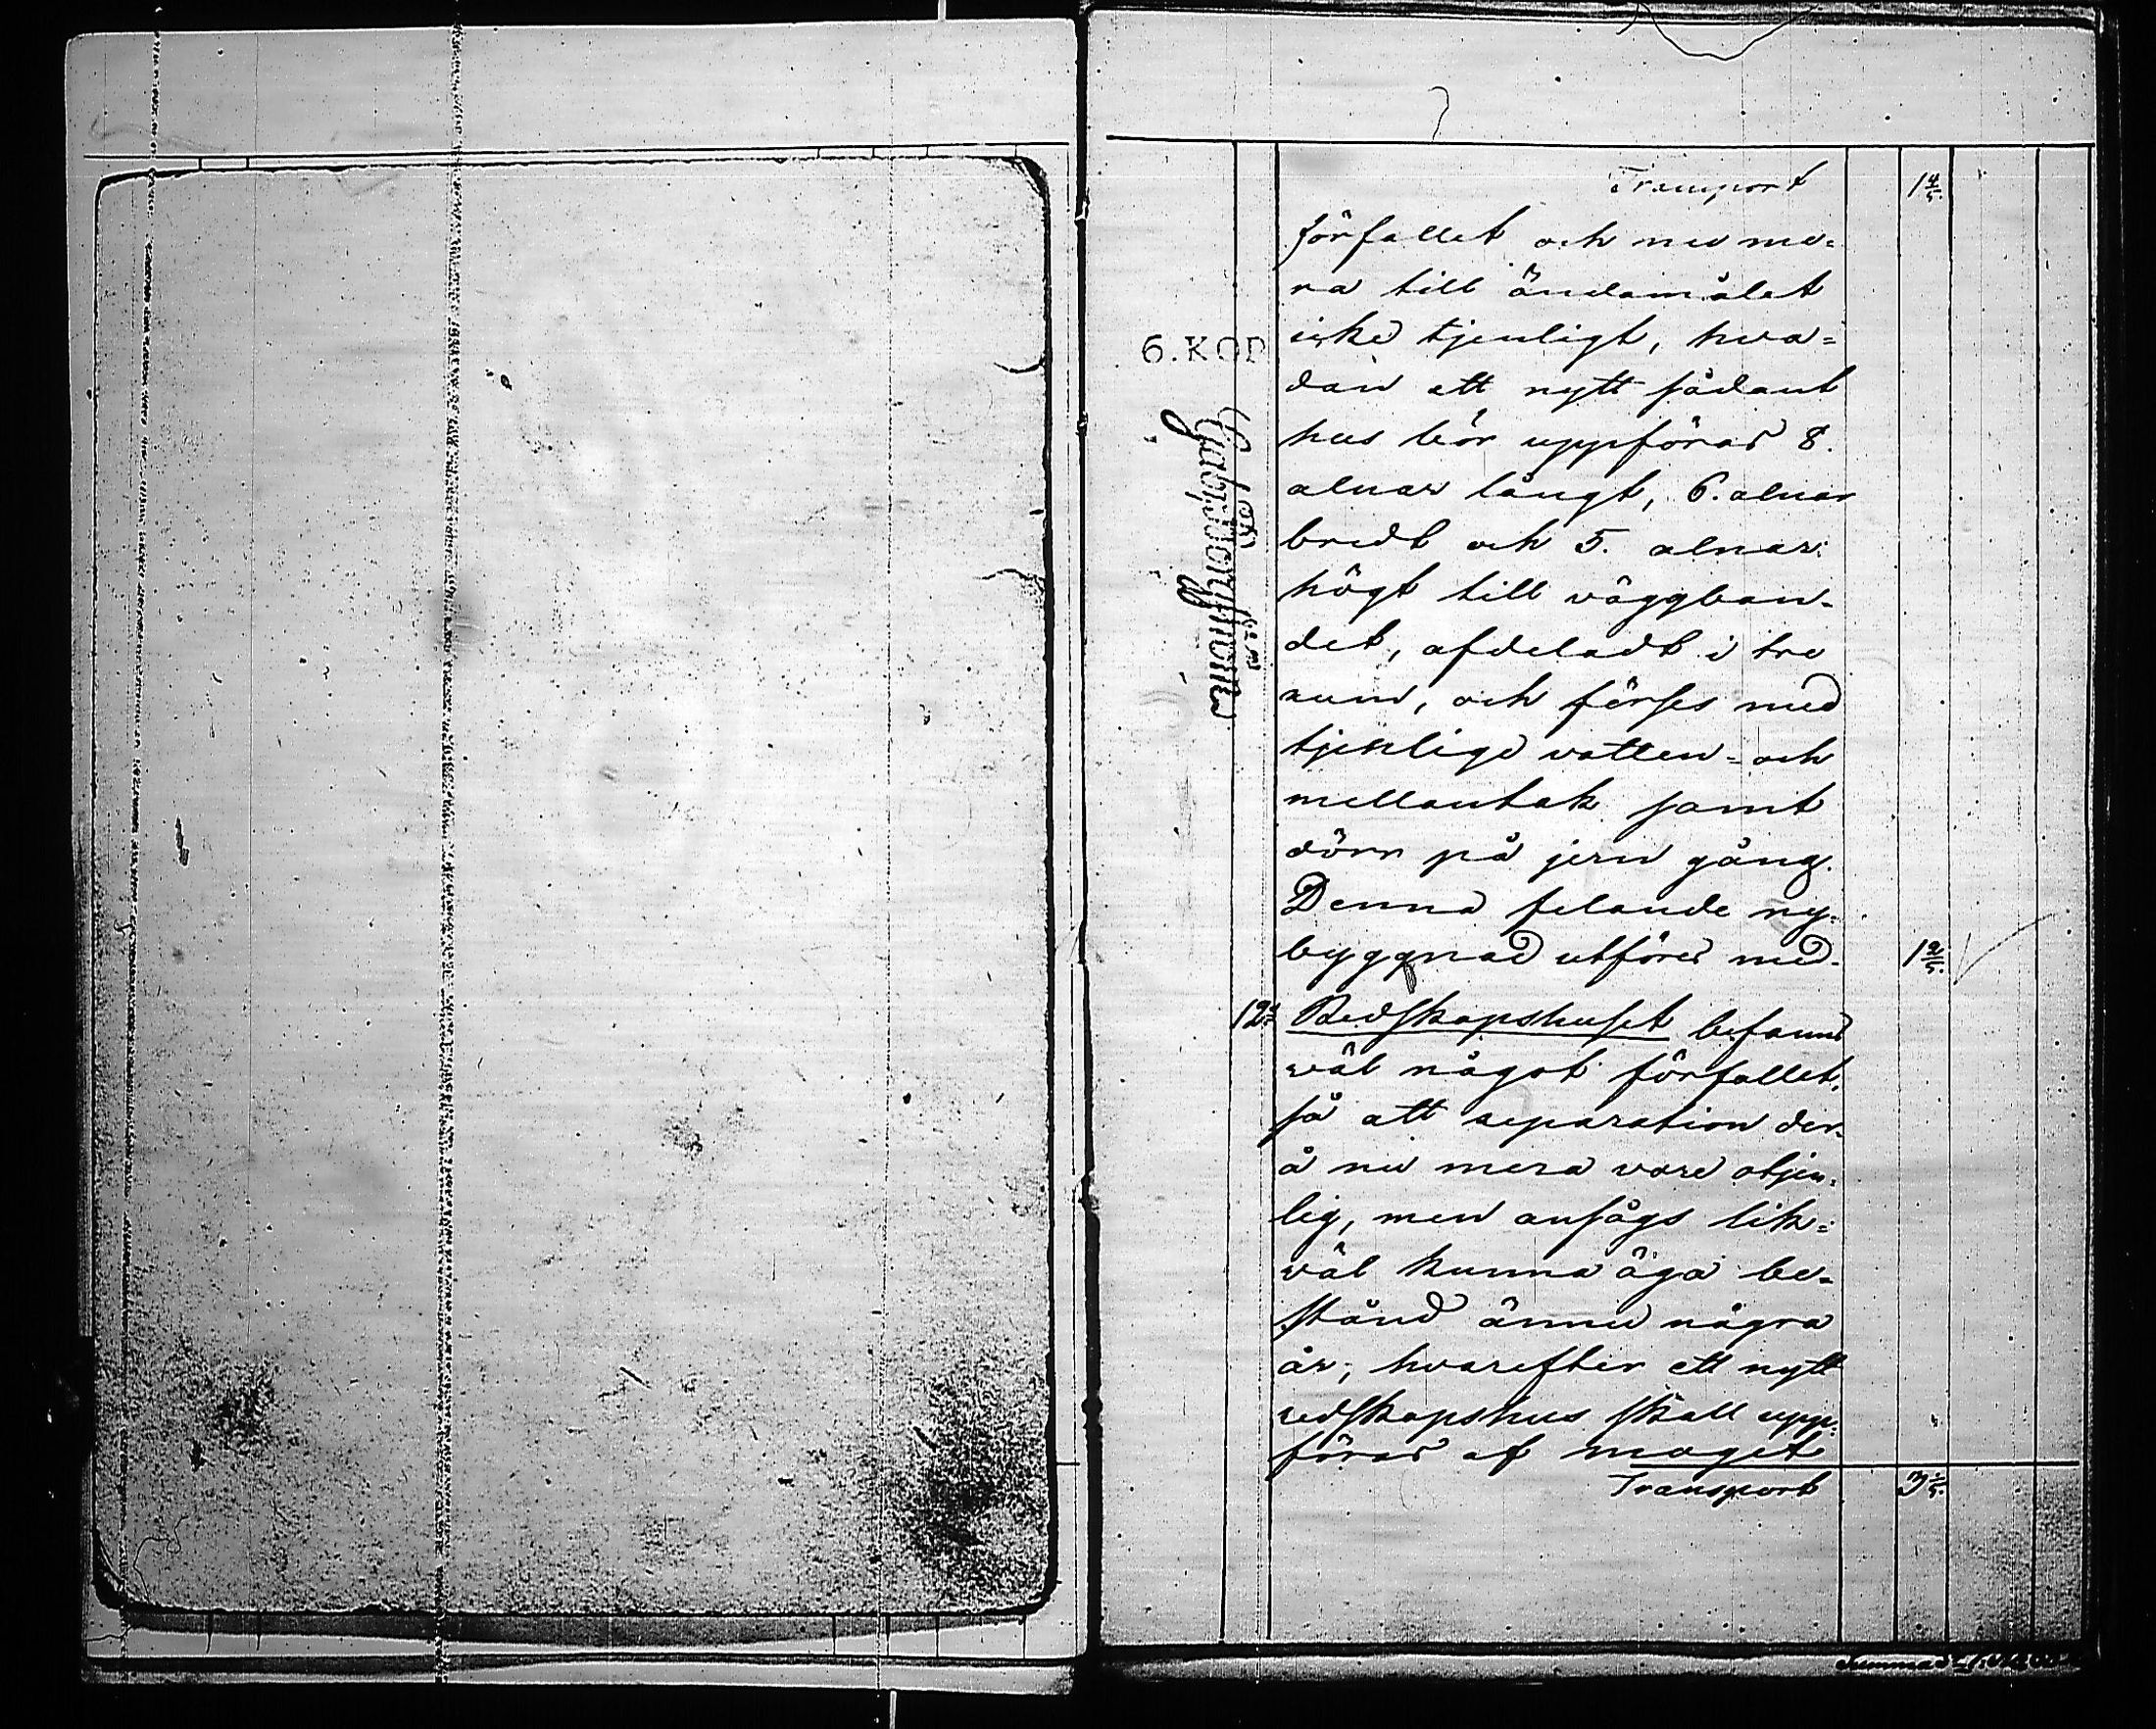 Transport 1 4/5.
förfallet och nu me=
ra till ändamålet
icke tjenligt, hva=
dan ett nytt sådant
hus bör uppföras 8.
alnar långt, 6. alnar
bredt och 5. alnar
högt till väggban-
det, afdeladt i tre
rum, och förses med
tjenliga vatten= och
mellantak samt
dörr på jern gång.
Denna felande ny-
byggnad utföres med.
12: Redskapshuset befanns
väl något förfallet,
så att reparation der-
å nu mera vore otjen-
lig, men ansågs lik=
väl kunna äga be-
stånd ännu några
år, hvarefter ett nytt
redskapshus skall upp-
föras af moget
Transport
6. KOP